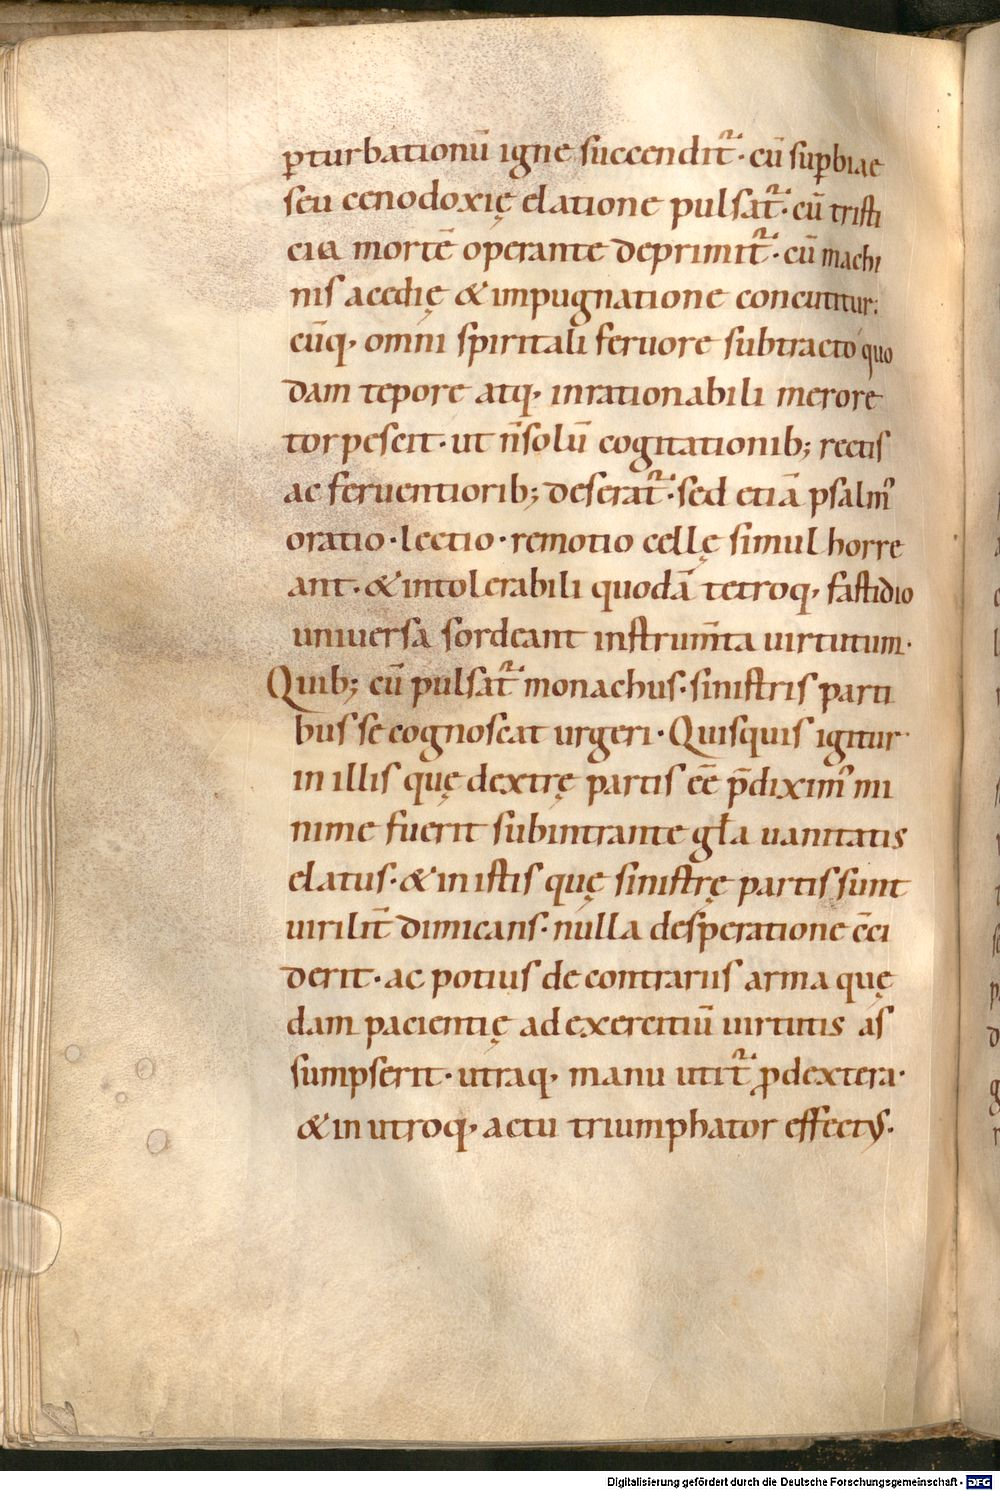 ꝑturbationū igne succendit᷑· cū suꝑbiae
seu cenodoxię elatione pulsat᷑· cū tristi
cia mortē operante deprimit᷑· cū machi
nis acedię & impugnatione concutitur:
cūq· omni spiritali feruore subtracto quo
dam tepore atq· inrationabili merore
torpescit· ut n̄ solū cogitationib; rectis
ac feruentiorib; deserat᷑· sed etiā psalm᾿
oratio· lectio· remotio cellę simul horre
ant· & intolerabili quodā tetroq· fastidio
uniuersa sordeant instrum̄ta uirtutum·
Quib; cū pulsat᷑ monachus· sinistris parti
bus se cognoscat urgeri· Quisquis igitur
in illis quę dextrę partis eē p̄dixim᾿ mi
nime fuerit subintrante gła uanitatis
elatus· & in istis quę sinistrę partis sunt
uirilit̄ dimicans· nulla desperatione c̄ci
derit· ac potius de contrariis arma quę
dam pacientię ad exercitiū uirtutis as
sumpserit· utraq· manu utit᷑ ꝓ dextera·
& in utroq· actu triumphator effectꝰ·
Digitalisierung gefördert durch die Deutsche Forschungsgemeinschaft - DFG